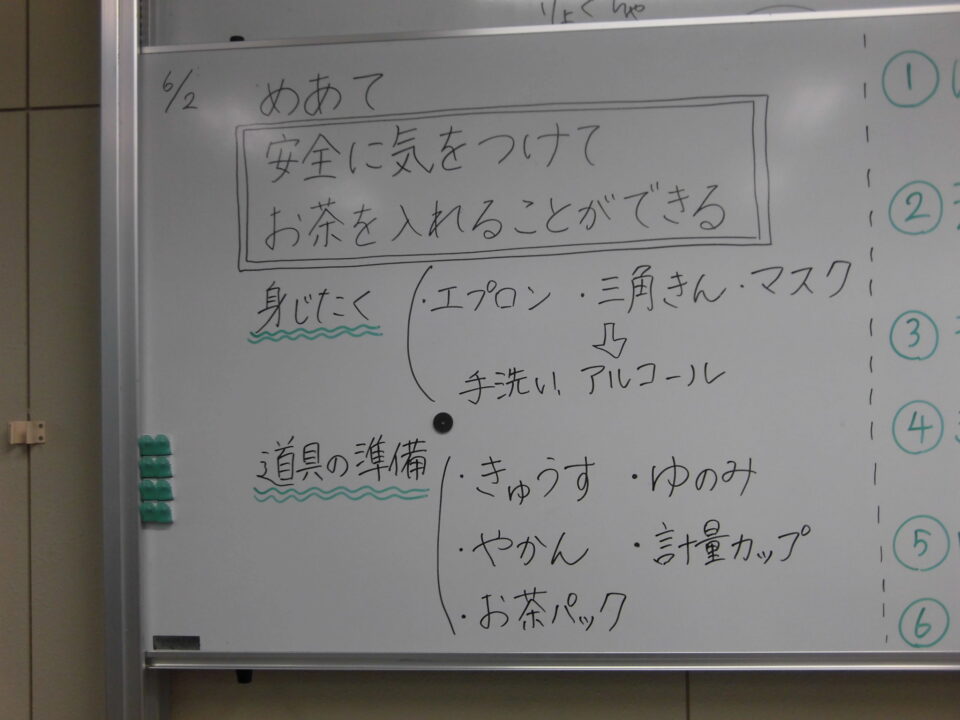 りょくちゃ
6/2 めあて
安全に気をつけて
お茶を入れることができる
身じたく ・エプロン ・三角きん・マスク
手洗い アルコール
道具の準備 ・きゅうす ・ゆのみ
・やかん ・計量カップ
・お茶パック
①
②
③
④
⑤
⑥